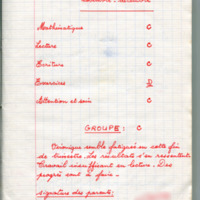 Novembre - décembre
Mathématique C
Lecture C
Ecriture C
Exercices D
Attention et soin C
GROUPE : C
Véronique semble fatiguée en cette fin
de trimestre. Les résultats s'en ressentent
Travail insuffisant en lecture. Des
progrès sont à faire.
signature des parents :